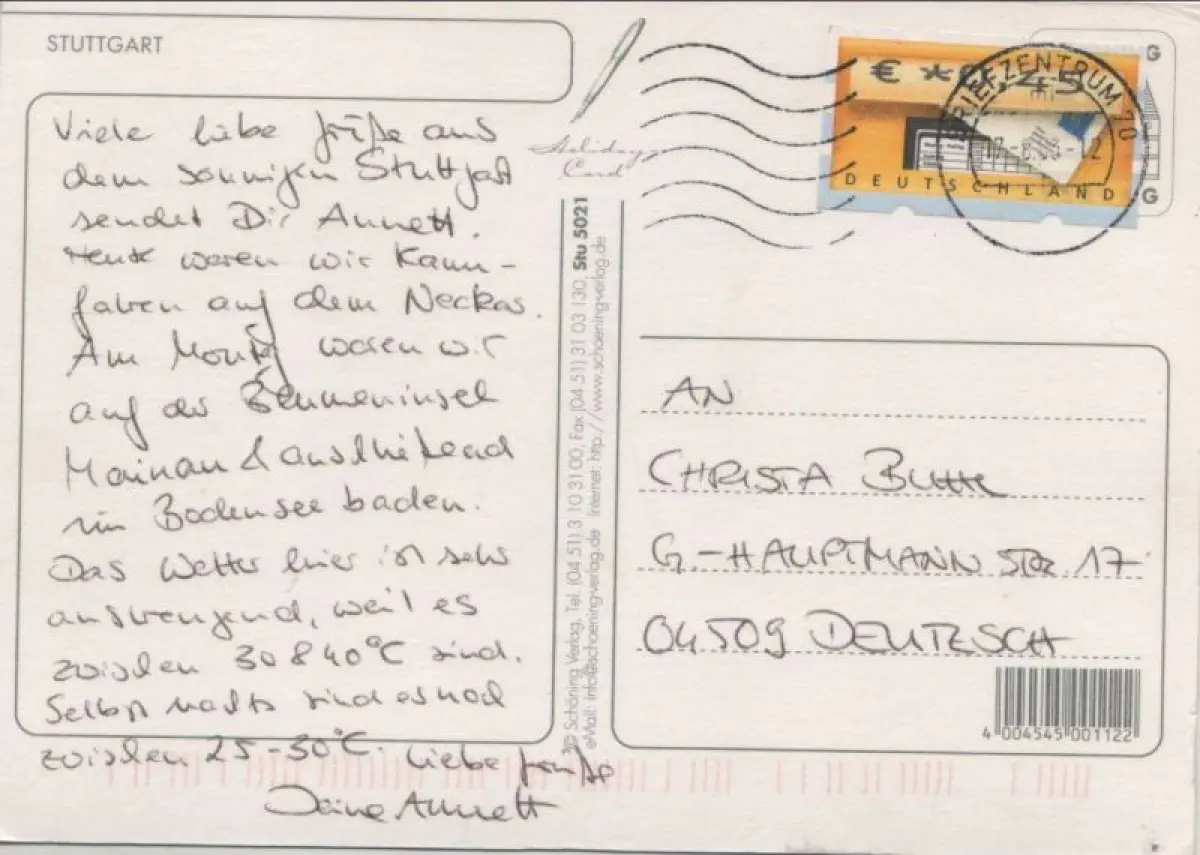 STUTTGART
Viele liebe Grüße aus
dem sonnigen Stuttgart
sendet Dir Annett.
Heute waren wir Kann-
fahren auf dem Neckar.
Am Montag waren wir
auf der Blumeninsel
Mainau & anschließend
im Bodensee baden.
Das Wetter hier ist sehr
anstrengend, weil es
zwischen 30 & 40°C sind.
Selbst nachts sind es noch
zwischen 25-30°C. Liebe Grüße
Deine Annett
Holiday
Card
© Schöning Verlag, Tel. (04 51) 3 10 31 00, Fax (04 51) 31 03 130, Stu 5021
eMail: info@schoeningverlag.de Internet: http://www.schoeningverlag.de
€ *0,45
DEUTSCHLAND
BRIEFZENTRUM 70
G
G
AN
CHRISTA
G-HAUPTMANN STR. 17
04509 DEUTZSCH
4 004545 001122